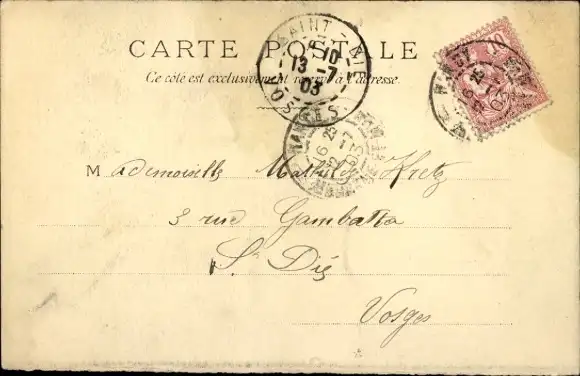 CARTE POSTALE
Ce côté est exclusivement réservé à l'adresse.
SAINT-DIÉ
10
13 -7
03
VOSGES
10
Mademoiselle Mathilde Kretz
3 rue Gambetta
St Dié
Vosges